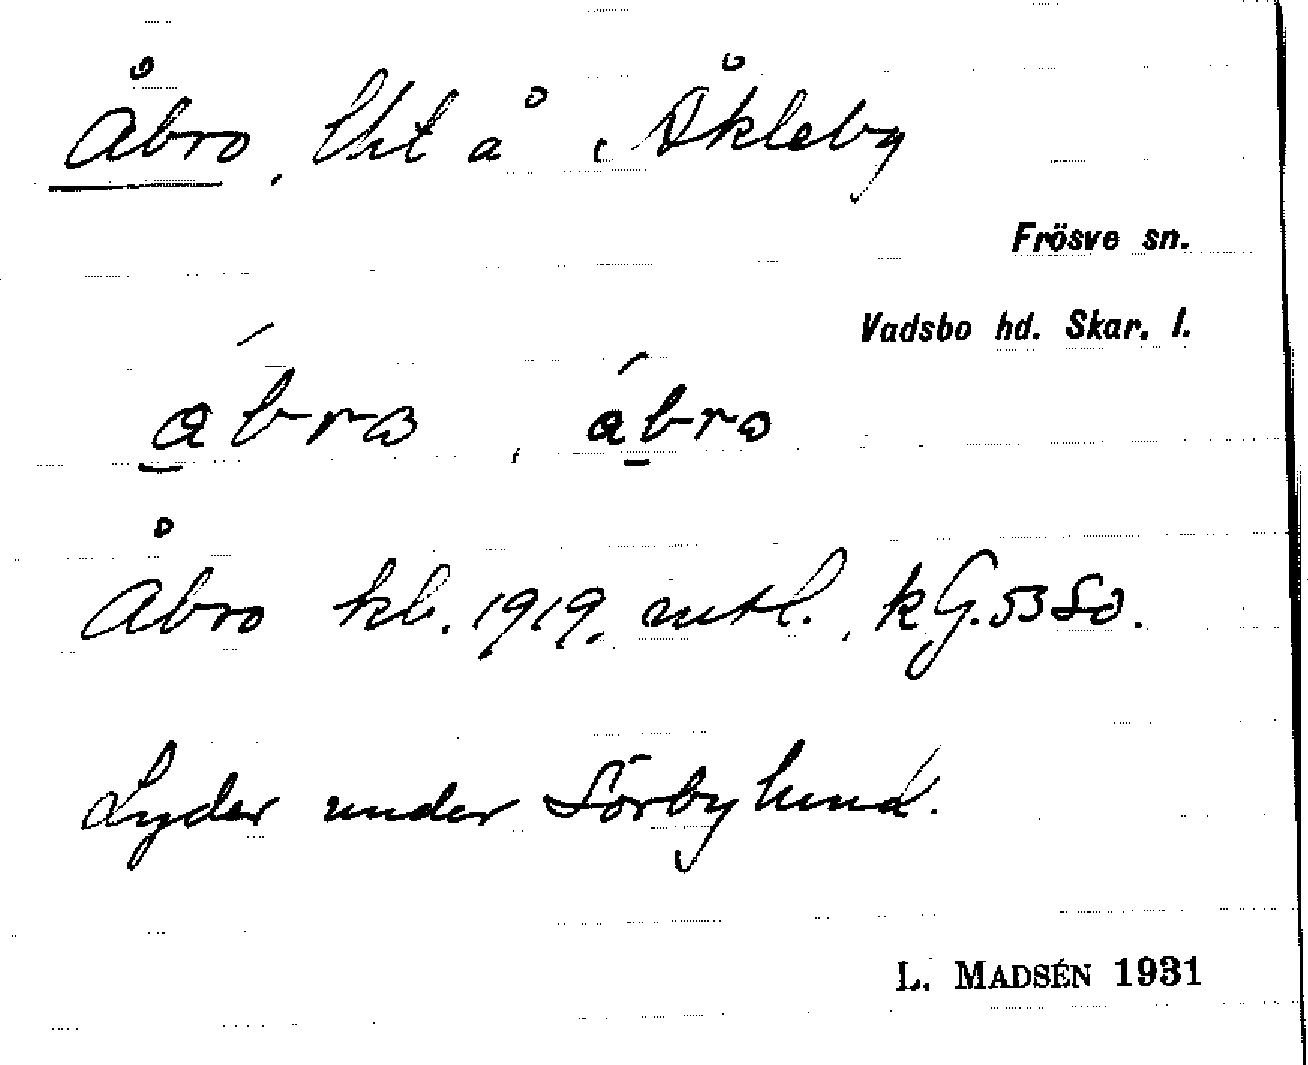 Åbro, lht å Åkleby
Frösve sn.
Vadsbo hd. Skar. l.
åbro kb. 1919, mtl., kG. 53 So.
Lyder under Sörbylund.
L. MADSÉN 1931